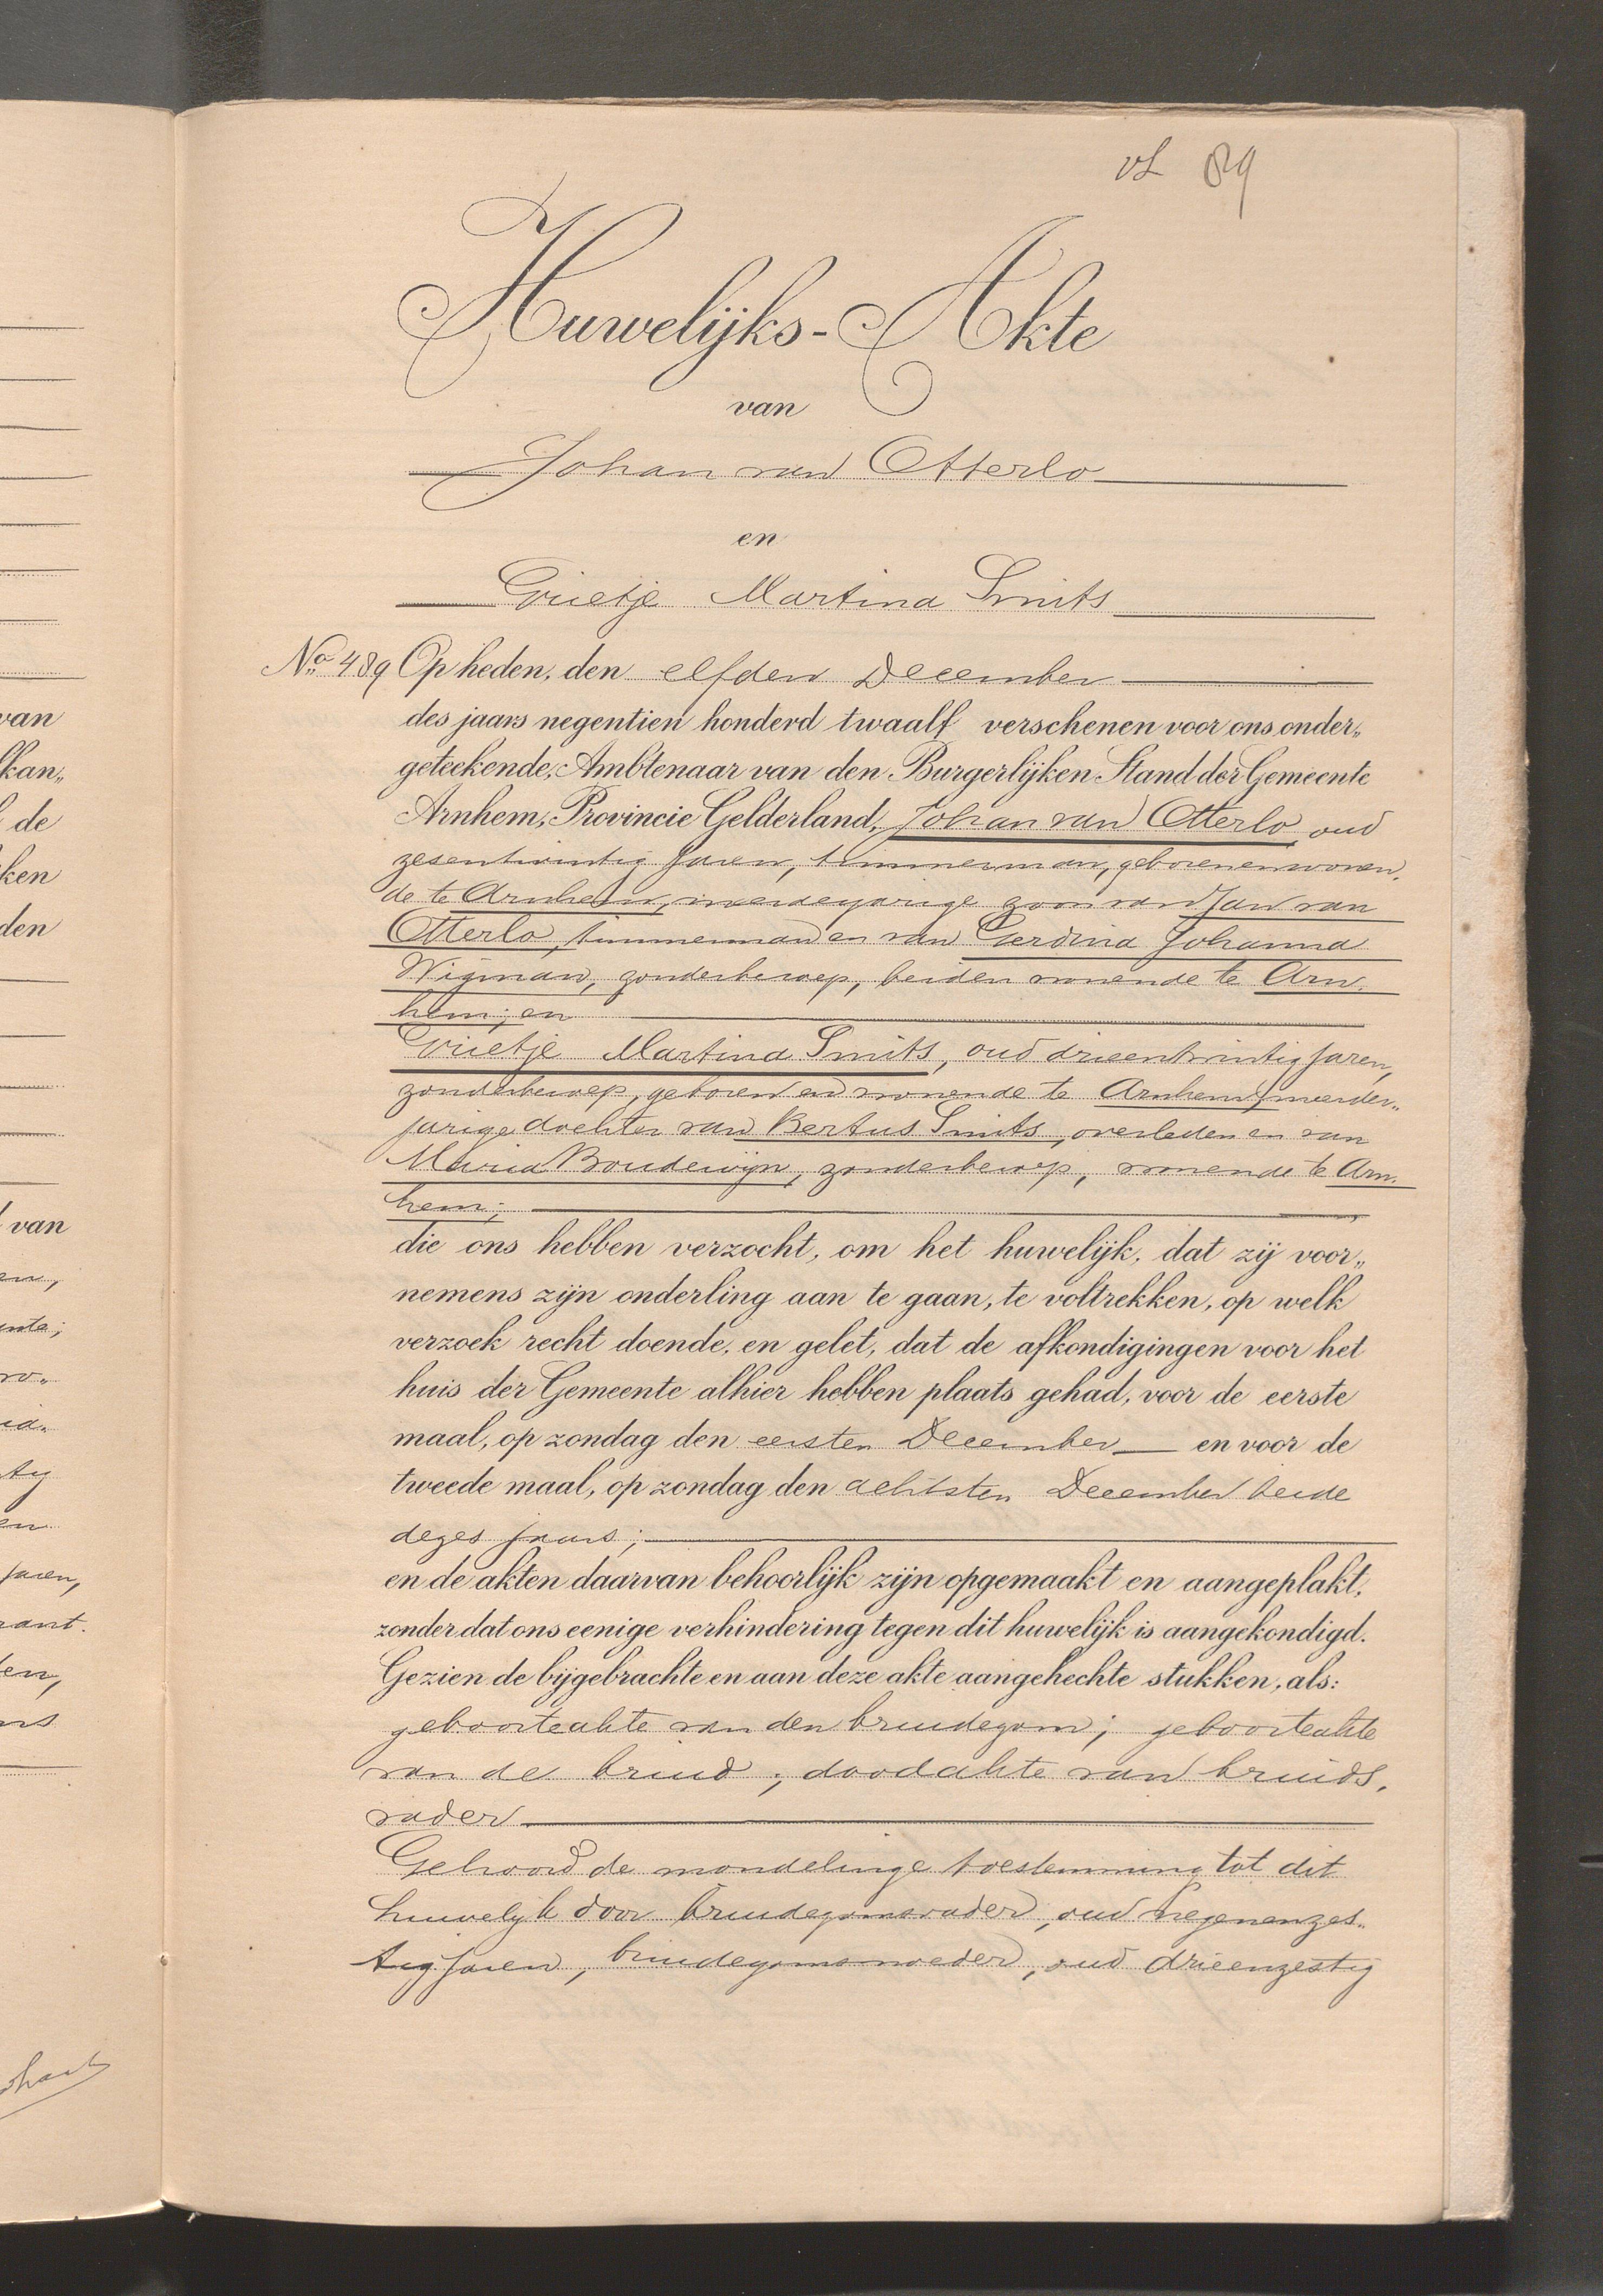 vL 89
Huwelijks-Akte
van
Johan van Otterlo
en
Grietje Martina Smits
No 489 Op heden, den elfden December
des jaars negentien honderd twaalf verschenen voor ons onder„
geteekende, Ambtenaar van den Burgerlijken Stand der Gemeente
Arnhem, Provincie Gelderland, Johan van Otterlo, oud
zesentwintig jaren, timmerman, geboren en wonen„
de te Arnhem, meerderjarige zoon van Jan van
Otterlo, timmerman en van Gerdina Johanna
Wigman, zonder beroep, beiden wonende te Arn„
hem; en
Grietje Martina Smits, oud drieentwintig jaren,
zonder beroep, geboren en wonende te Arnhem, meerder„
jarige dochter van Bertus Smits, overleden en van
Maria Boudewijn, zonder beroep, wonende te Arn„
hem;
die ons hebben verzocht, om het huwelijk, dat zij voor„
nemens zijn onderling aan te gaan, te voltrekken, op welk
verzoek recht doende, en gelet, dat de afkondigingen voor het
huis der Gemeente alhier hebben plaats gehad, voor de eerste
maal, op zondag den eersten December en voor de
tweede maal, op zondag den achtsten December beide
dezes jaars;
en de akten daarvan behoorlijk zijn opgemaakt en aangeplakt,
zonder dat ons eenige verhindering tegen dit huwelijk is aangekondigd.
Gezien de bijgebrachte en aan deze akte aangehechte stukken, als:
geboorteakte van den bruidegom; geboorteakte
van de bruid; doodakte van bruids„
vader
Gehoord de mondelinge toestemming tot dit
huwelijk door bruidegomsvader, oud negenenzes„
tig jaren, bruidegomsmoeder, oud drieenzestig
van
kan„
de
ken
den
van
en,
ente;
ro„
id„
tig
en
jaren,
rant.
en,